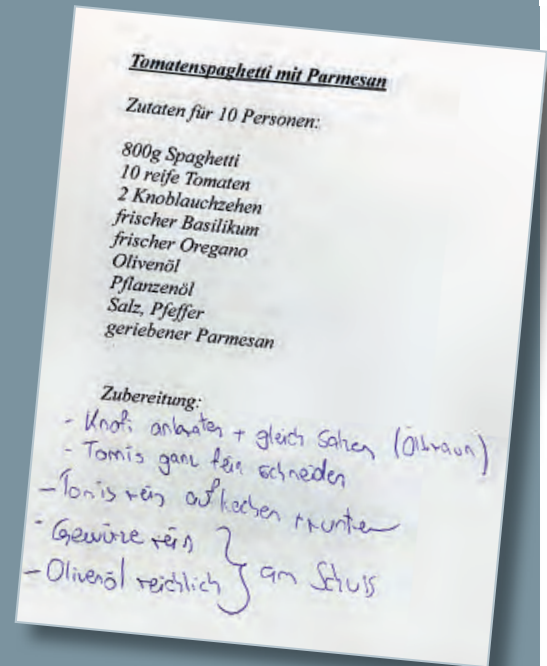 Tomatenspaghetti mit Parmesan
Zutaten für 10 Personen:
800g Spaghetti
10 reife Tomaten
2 Knoblauchzehen
frischer Basilikum
frischer Oregano
Olivenöl
Pflanzenöl
Salz, Pfeffer
geriebener Parmesan
Zubereitung:
- Knofi anbraten + gleich salzen
- Tomis ganz fein schneiden
- Tomis rein aufkochen
- Gewürze rein
- Olivenöl reichlich } am Schuss